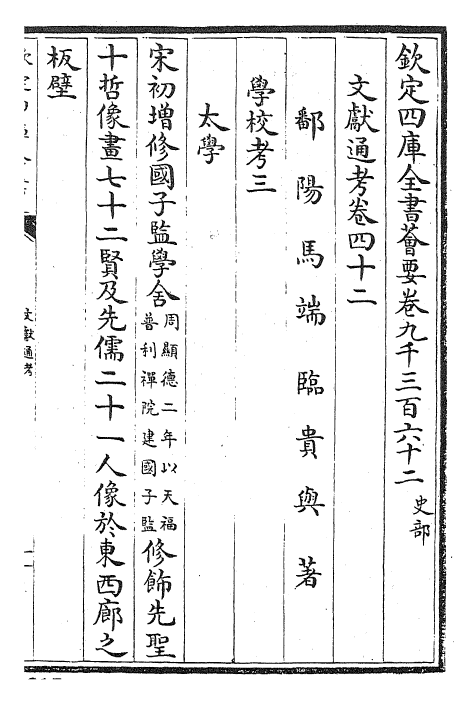 欽定四庫全書薈要卷九千三百六十二 史部
文獻通考卷四十二
鄱陽馬端臨貴與著
學校考三
太學
宋初增修國子監學舍周顯德二年以天福普利禪院建國子監修飾先聖
十哲像畫七十二賢及先儒二十一人像於東西廊之
板壁
文獻通考
一